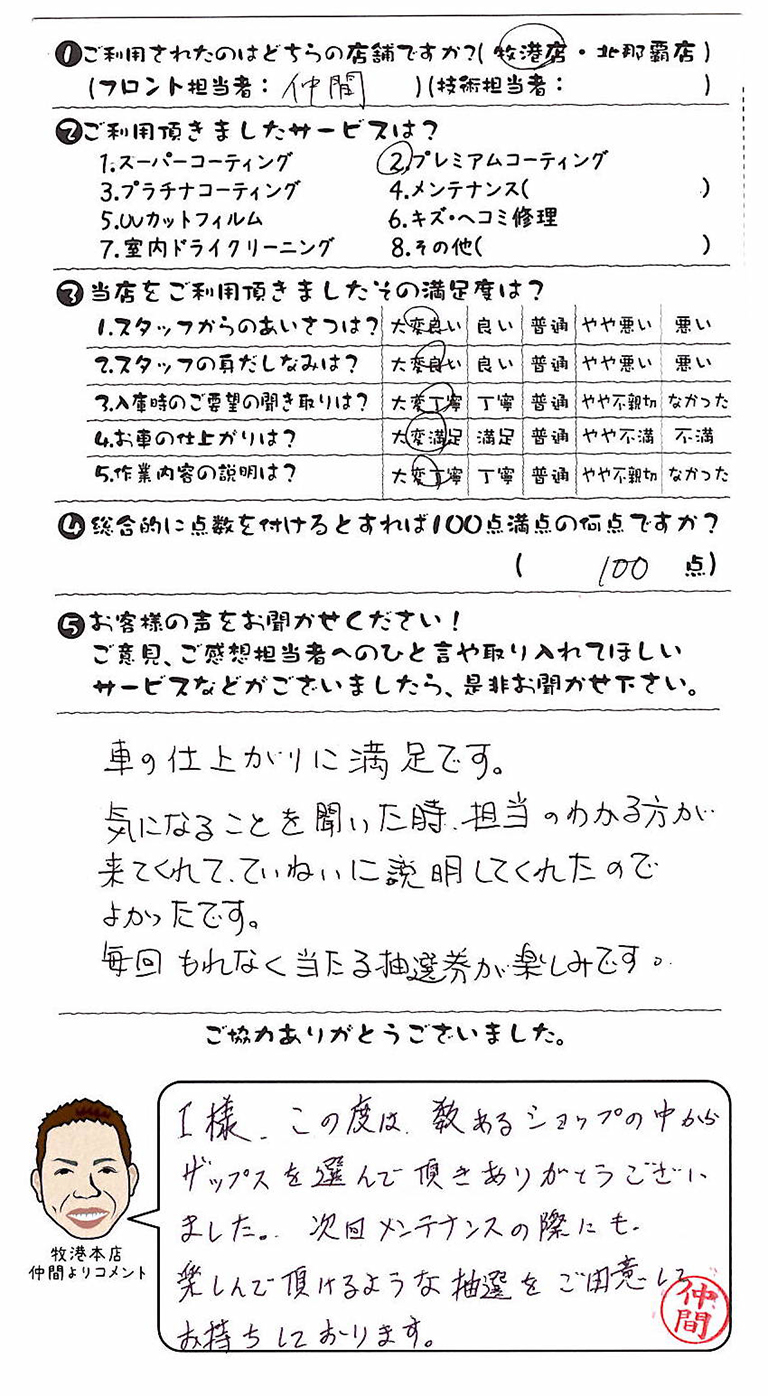 ❶ご利用されたのはどちらの店舗ですか?(牧港店・北那覇店)
(フロント担当者: 仲間 )(技術担当者: )
❷ご利用頂きましたサービスは?
1.スーパーコーティング 2.プレミアムコーティング
3.プラチナコーティング 4.メンテナンス( )
5.UVカットフィルム 6.キズ・ヘコミ修理
7.室内ドライクリーニング 8.その他( )
❸当店をご利用頂きましたその満足度は?
1.スタッフからのあいさつは? 大変良い 良い 普通 やや悪い 悪い
2.スタッフの身だしなみは? 大変良い 良い 普通 やや悪い 悪い
3.入庫時のご要望の聞き取りは? 大変丁寧 丁寧 普通 やや不親切 なかった
4.お車の仕上がりは? 大変満足 満足 普通 やや不満 不満
5.作業内容の説明は? 大変丁寧 丁寧 普通 やや不親切 なかった
❹総合的に点数を付けるとすれば100点満点の何点ですか?
( 100 点)
❺お客様の声をお聞かせください!
ご意見、ご感想担当者へのひと言や取り入れてほしい
サービスなどがございましたら、是非お聞かせ下さい。
車の仕上がりに満足です。
気になることを聞いた時、担当のわかる方が
来てくれて、ていねいに説明してくれたので
よかったです。
毎回もれなく当たる抽選券が楽しみです。
ご協力ありがとうございました。
I様、この度は、数あるショップの中から
ザップスを選んで頂きありがとうござい
ました。次回メンテナンスの際にも、
楽しんで頂けるような抽選をご用意して
お持ちしております。
仲間
牧港本店
仲間よりコメント